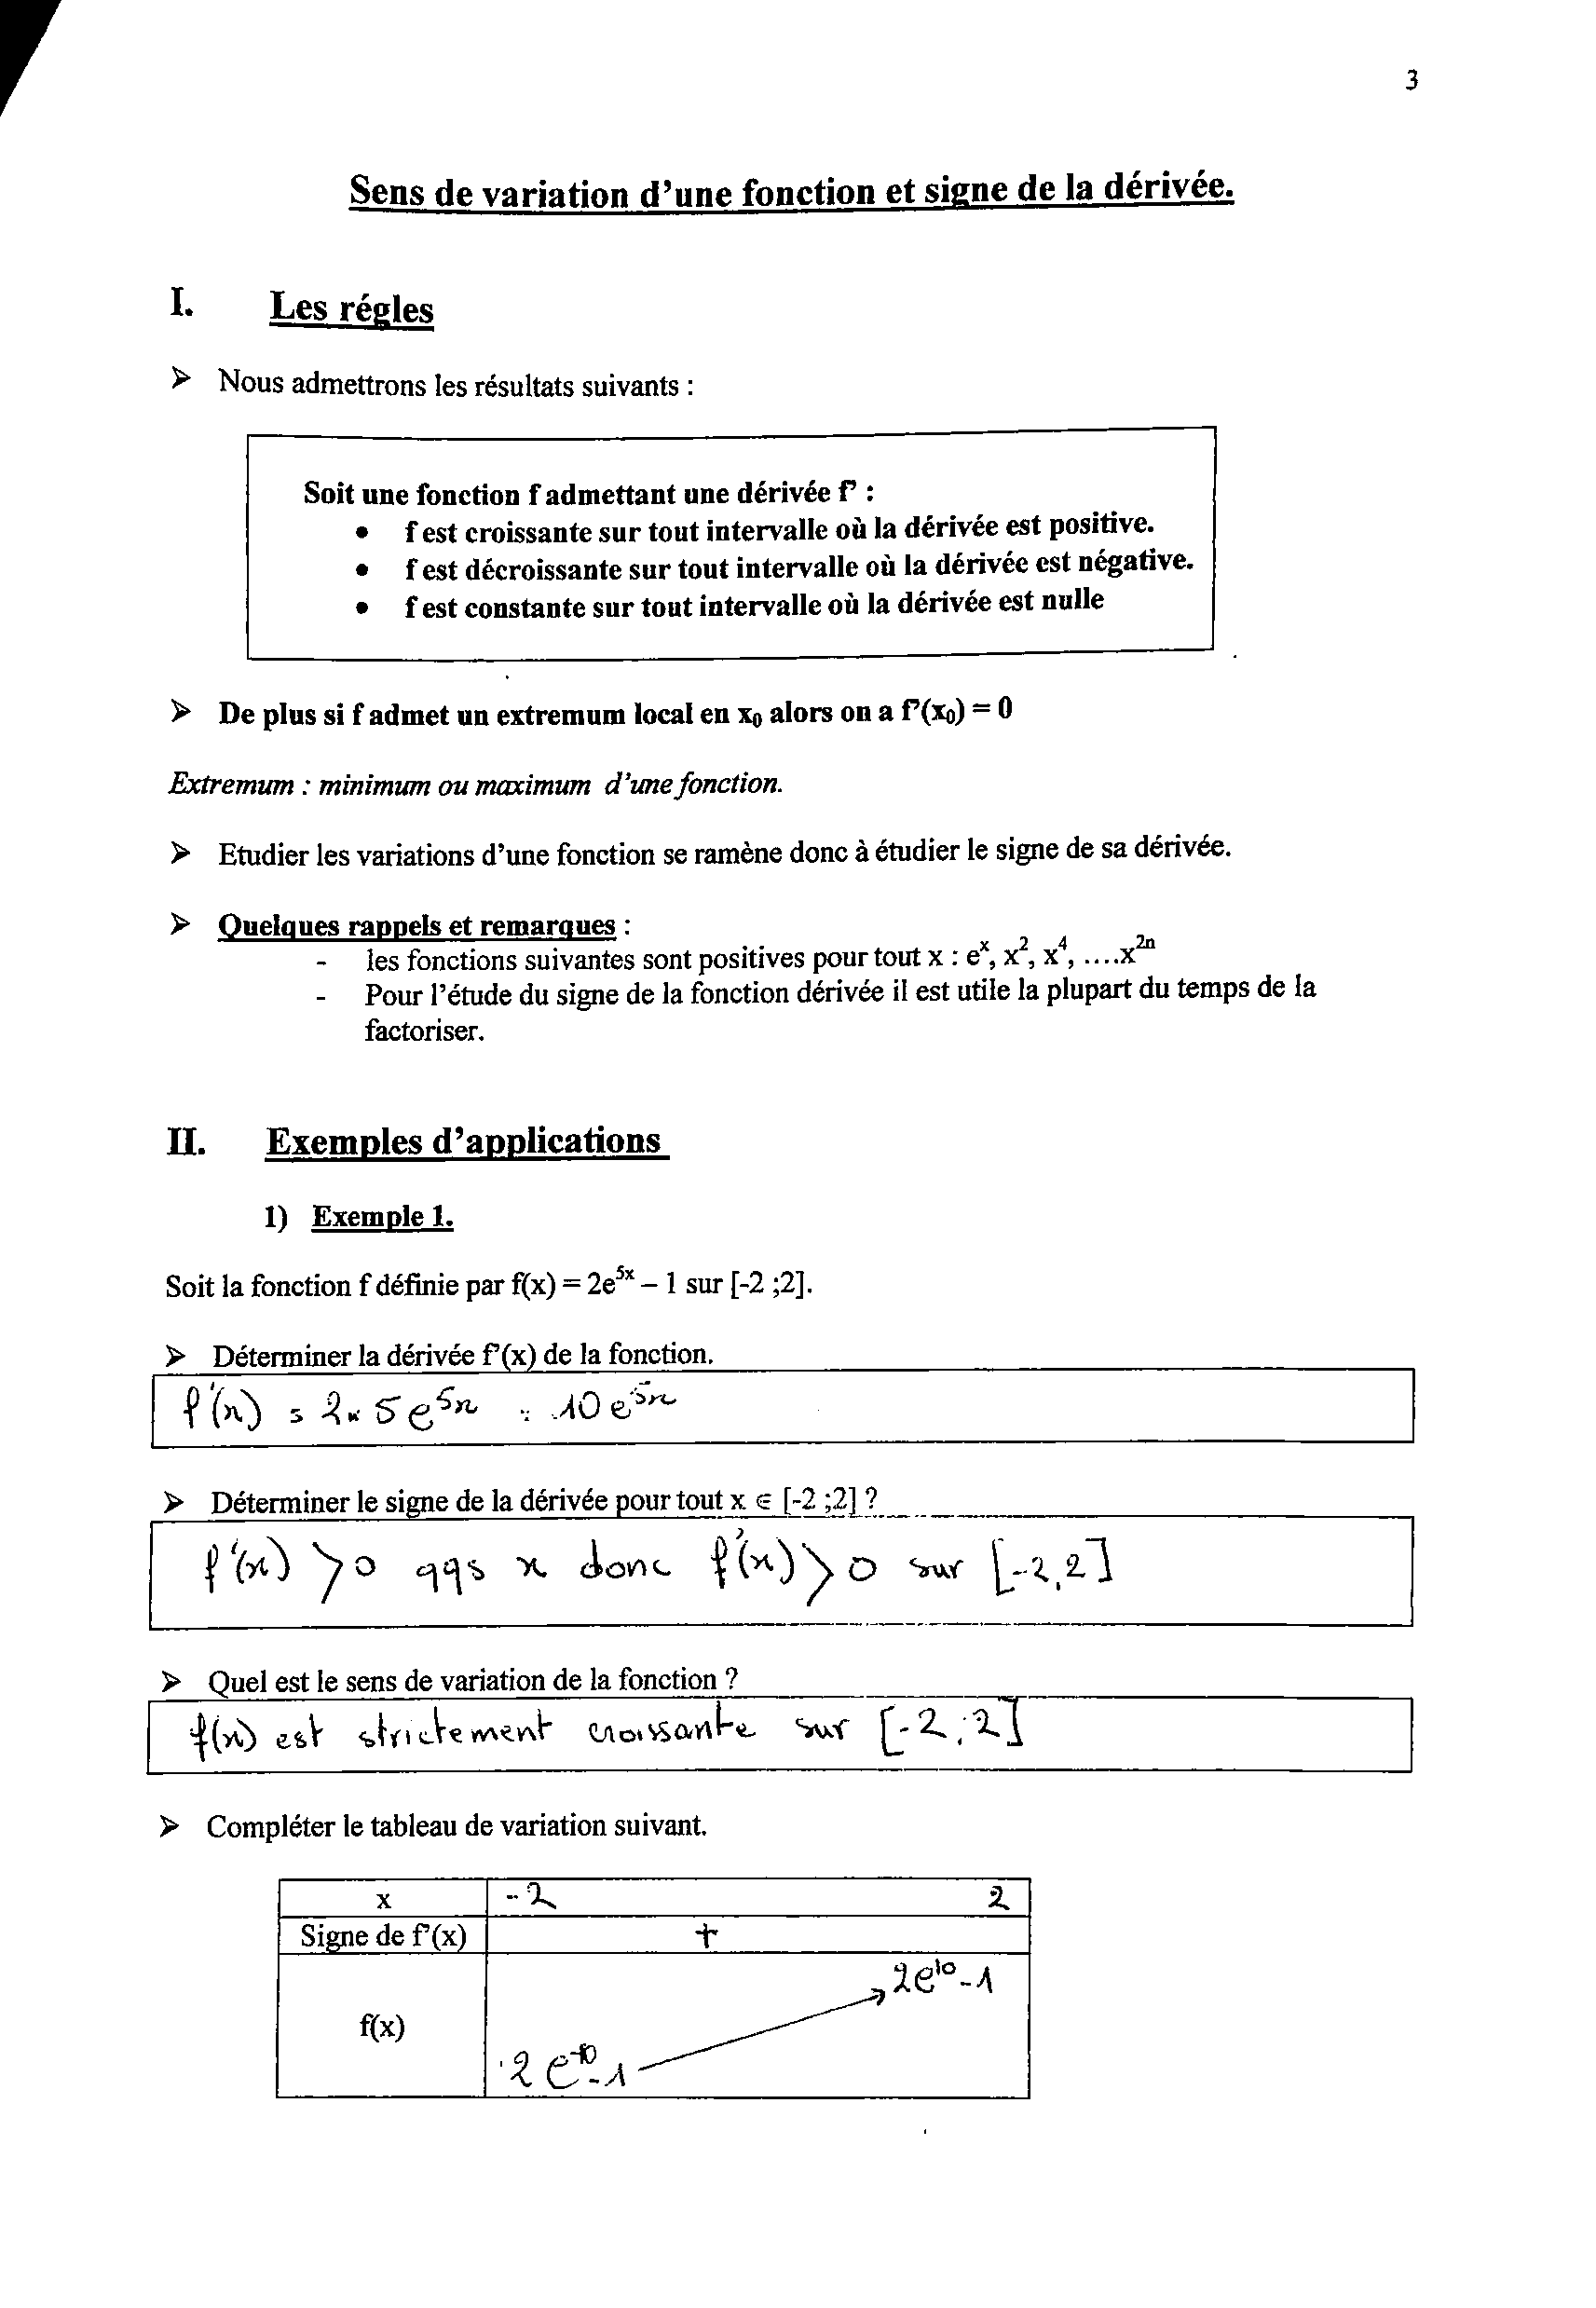 3
Sens de variation d’une fonction et signe de la dérivée.
I. Les régles
➢ Nous admettrons les résultats suivants :
Soit une fonction f admettant une dérivée f’ :
• f est croissante sur tout intervalle où la dérivée est positive.
• f est décroissante sur tout intervalle où la dérivée est négative.
• f est constante sur tout intervalle où la dérivée est nulle
➢ De plus si f admet un extremum local en x₀ alors on a f’(x₀) = 0
Extremum : minimum ou maximum d’une fonction.
➢ Etudier les variations d’une fonction se ramène donc à étudier le signe de sa dérivée.
➢ Quelques rappels et remarques :
- les fonctions suivantes sont positives pour tout x : eˣ, x², x⁴, ….x²ⁿ
- Pour l’étude du signe de la fonction dérivée il est utile la plupart du temps de la
factoriser.
II. Exemples d’applications
1) Exemple 1.
Soit la fonction f définie par f(x) = 2e⁵ˣ – 1 sur [-2 ;2].
➢ Déterminer la dérivée f’(x) de la fonction.
f'(x) = 2 × 5 e⁵ˣ = 10 e⁵ˣ
➢ Déterminer le signe de la dérivée pour tout x ∈ [-2 ;2] ?
f'(x) > 0 qqs x donc f'(x) > 0 sur [-2,2]
➢ Quel est le sens de variation de la fonction ?
f(x) est strictement croissante sur [-2;2]
➢ Compléter le tableau de variation suivant.
x -2 2
Signe de f’(x) +
2e¹⁰-1
f(x)
2e⁻¹⁰-1